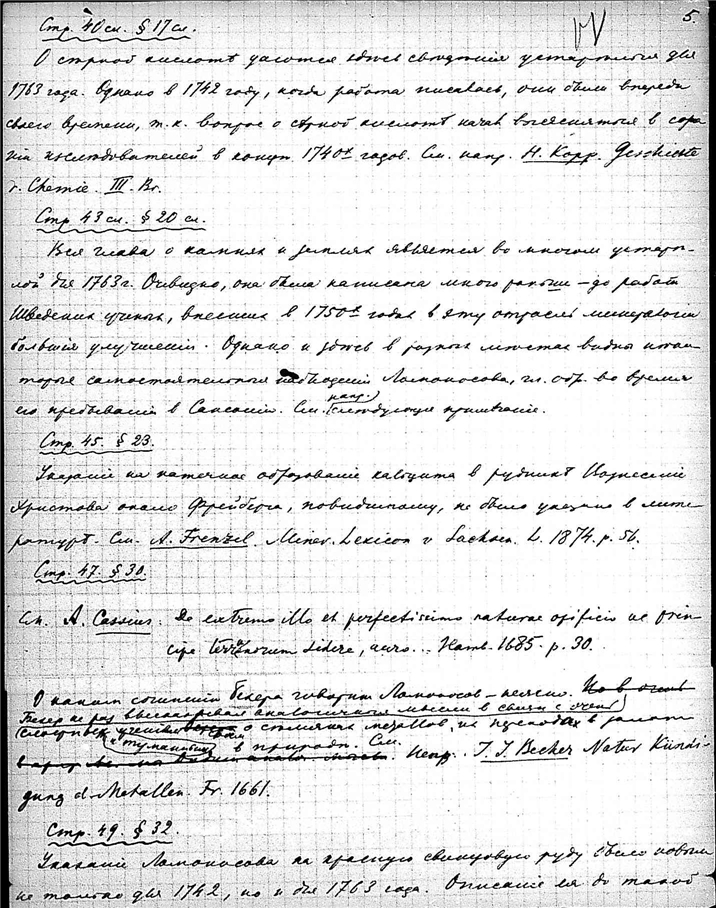 5.
Стр. 40 сл. § 17 сл.
О сѣрной кислотѣ даются здѣсь свѣдѣнія устарѣлыя для
1763 года. Однако в 1742 году, когда работа писалась, они были впереди
своего времени, т. к. вопрос о сѣрной кислотѣ начал выясняться в
изслѣдователей в концѣ 1740х годов. См. напр. H. Kopp. Geschichte
d. Chemie. III. Br.
Стр. 43 сл. § 20 сл.
Вся глава о камнях и землях является во многом устарѣ-
лой для 1763 г. Очевидно, она была написана много раньше – до работ
Шведских ученых, внесших в 1750х годах в эту отрасль минералогіи
большія улучшенія. Однако и здѣсь в разных мѣстах видны нѣко-
торыя самостоятельныя наблюденія Ломоносова, гл. обр. во время
его пребыванія в Саксоніи. См. напр. слѣдующее примѣчаніе.
Стр. 45. § 23.
Указаніе на натечное образованіе кальцита в рудникѣ Вознесеніе
Христова около Фрейберга, повидимому, не было указано в лите-
ратурѣ. См. A. Frenzel. Miner. Lexicon v Sachsen. L. 1874. p. 56.
Стр. 47. § 30.
См. A. Cassius. De extremo illo et perfectissimo naturae opificio ac prin-
cipe terraenorum sidere, auro... Hamb. 1685. p. 30.
О каком сочиненіи Бехера говорит Ломоносов – неясно. Но в очень
Бехер не раз высказывал аналогичныя мысли в связи с очень
сложным и туманным ученіем о металлов, их в
в природѣ. См. Напр. J. J. Becher Natur Kündi-
gung d. Metallen. Fr. 1661.
Стр. 49. § 32.
Указаніе Ломоносова на красную свинцовую руду было новым
не только для 1742, но и для 1763 года. Описаніе ея до такой